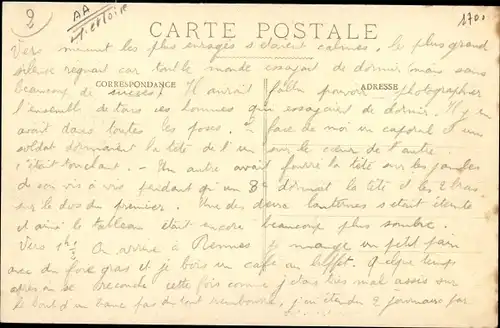 2
AA
1700
CARTE POSTALE
CORRESPONDANCE
ADRESSE
Vers minuit les plus enragés s'étaient calmés, le plus grand
silence régnait car tout le monde essayait de dormir (mais sans
beaucoup de succès). Il aurait fallu pouvoir photographier
l'ensemble de tous ces hommes qui essayaient de dormir. Il y en
avait dans toutes les poses. En face de moi un caporal et un
soldat dormaient la tête de l'un sur le cœur de l'autre.
c'était touchant. - Un autre avait fourré la tête sur les jambes
de son vis à vis pendant qu'un 3e dormait la tête et les 2 bras
sur le dos du premier. Une des deux lanternes s'était éteinte
et ainsi le tableau était encore beaucoup plus sombre.
Vers 1h ½ On arrive à Rennes je mange un petit pain
avec du foie gras et je bois un café au buffet. Quelque temps
après on se recouche cette fois comme j'étais très mal assis sur
le bord d'un banc pas du tout rembourré, j'ai étendu 2 journaux par